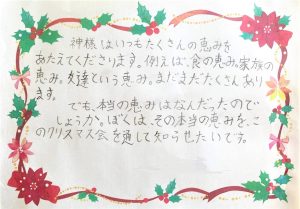 神様はいつもたくさんの恵みを
あたえてくださります。例えば、食の恵み。家族の
恵み。友達という恵み。まだまだたくさんあり
ます。
でも、本当の恵みはなんだったので
しょうか。ぼくは、その本当の恵みを、こ
のクリスマス会を通して知らせたいです。